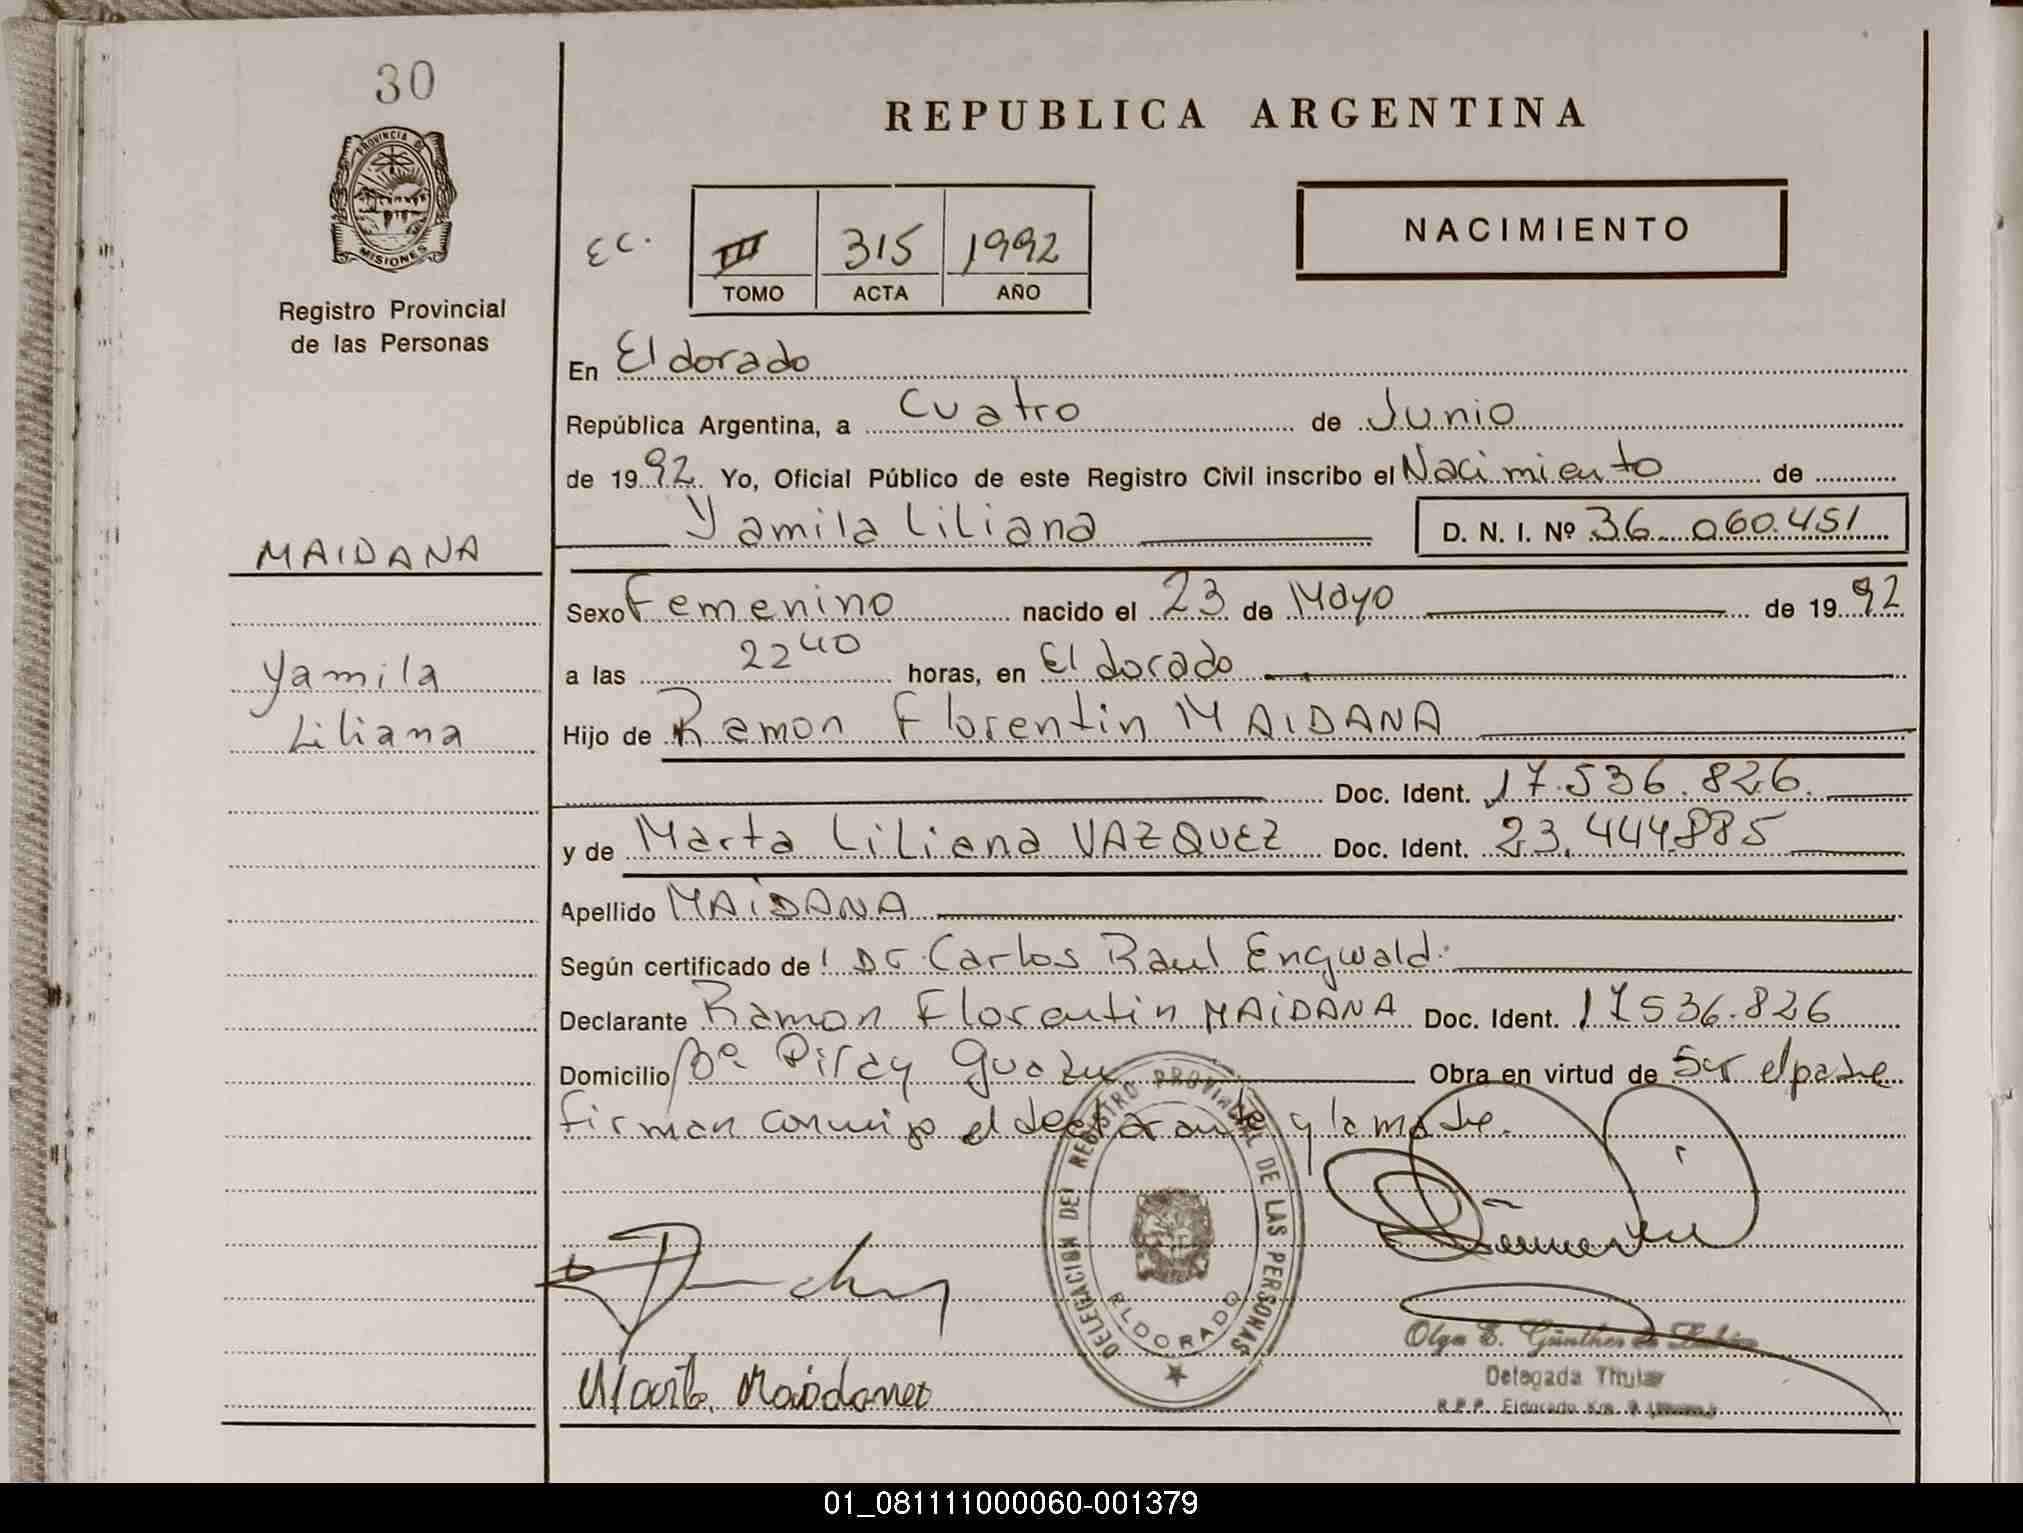 30
PROVINCIA DE
MISIONES
Registro Provincial
de las Personas
MAIDANA
Yamila
Liliana
REPUBLICA ARGENTINA
EC.
III 315 1992
TOMO ACTA AÑO
NACIMIENTO
En Eldorado
República Argentina, a Cuatro de Junio
de 1992 Yo, Oficial Público de este Registro Civil inscribo el Nacimiento de
Yamila Liliana D. N. I. Nº 36.060.451
Sexo Femenino nacido el 23 de Mayo de 1992
a las 2240 horas, en Eldorado
Hijo de Ramon Florentin MAIDANA
Doc. Ident. 17.536.826.
y de Marta Liliana VAZQUEZ Doc. Ident. 23.444.885
Apellido MAIDANA
Según certificado de Dr. Carlos Raul Engwald.
Declarante Ramon Florentin MAIDANA Doc. Ident. 17536.826
Domicilio Bº Piray Guazu Obra en virtud de Ser el padre
firman conmigo el declarante y la madre.
DELEGACION DEL REGISTRO PROVINCIAL DE LAS PERSONAS
ELDORADO
Olga E. Günther de
Delegada Titular
R.P.P. Eldorado Km. 9
Marta Maidana
01_081111000060-001379